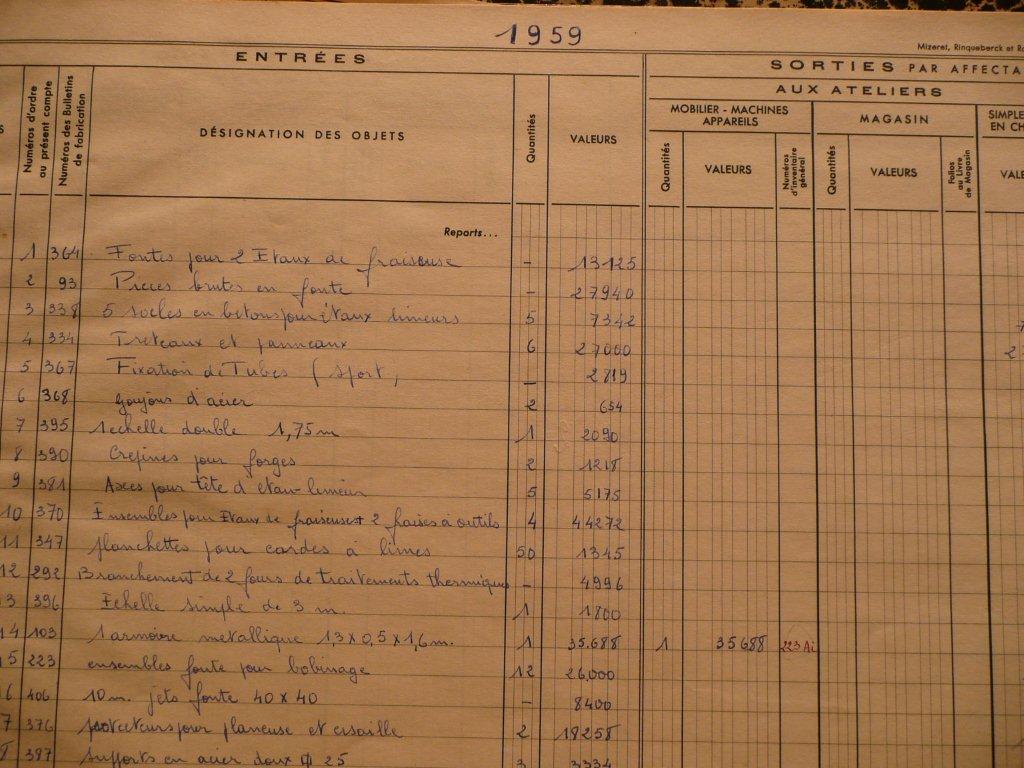 1959
Mizeret, Rinqueberck et
ENTRÉES
SORTIES PAR AFFECTA
AUX ATELIERS
Numéros d'ordre au présent compte
Numéros des Bulletins de fabrication
DÉSIGNATION DES OBJETS
Quantités
VALEURS
MOBILIER - MACHINES
APPAREILS
MAGASIN
SIMPLE
EN CH
Quantités
VALEURS
Numéros d'inventaire général
Quantités
VALEURS
Folios au Livre de Magasin
VALE
Reports...
1 364 Fontes pour 2 Etaux de fraiseuse - 13125
2 93 Pieces brutes en fonte - 27940
3 338 5 socles en betons pour étaux limeurs 5 7342
4 334 Treteaux et panneaux 6 27000
5 367 Fixation de Tubes (sport, - 2819
6 368 goujons d'acier 2 654
7 395 1 echelle double 1,75 m 1 2090
8 390 Crepines pour forges 2 1218
9 381 Axes pour tête d'étau-limeur 5 5175
10 370 Ensembles pour Etaux de fraiseuse + 2 haises à outils 4 44272
11 347 planchettes pour cardes à limes 50 1345
12 292 Branchement de 2 fours de traitements thermiques - 4996
3 396 Echelle simple de 3 m. 1 1800
14 103 1 armoire metallique 1,3 x 0,5 x 1,6 m. 1 35.688 1 35688 223 Ai
5 223 ensembles fonte pour bobinage 12 26,000
6 406 10 m. jets fonte 40 x 40 - 8400
7 376 protecteurs pour planeuse et cisaille 2 19258
8 397 supports en acier doux ф 25 3 3334